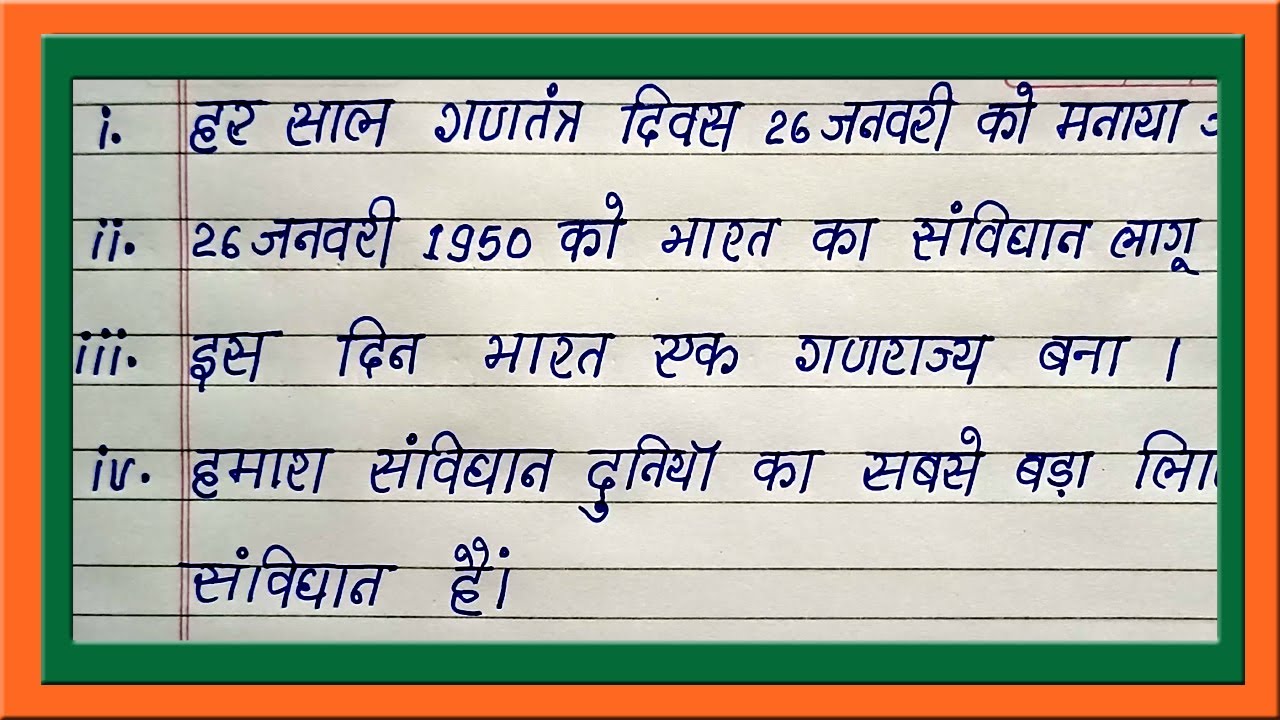 i. हर साल गणतंत्र दिवस 26 जनवरी को मनाया
ii. 26 जनवरी 1950 को भारत का संविधान लागू
iii. इस दिन भारत एक गणराज्य बना ।
iv. हमारा संविधान दुनियाॅ का सबसे बड़ा
संविधान हैं।